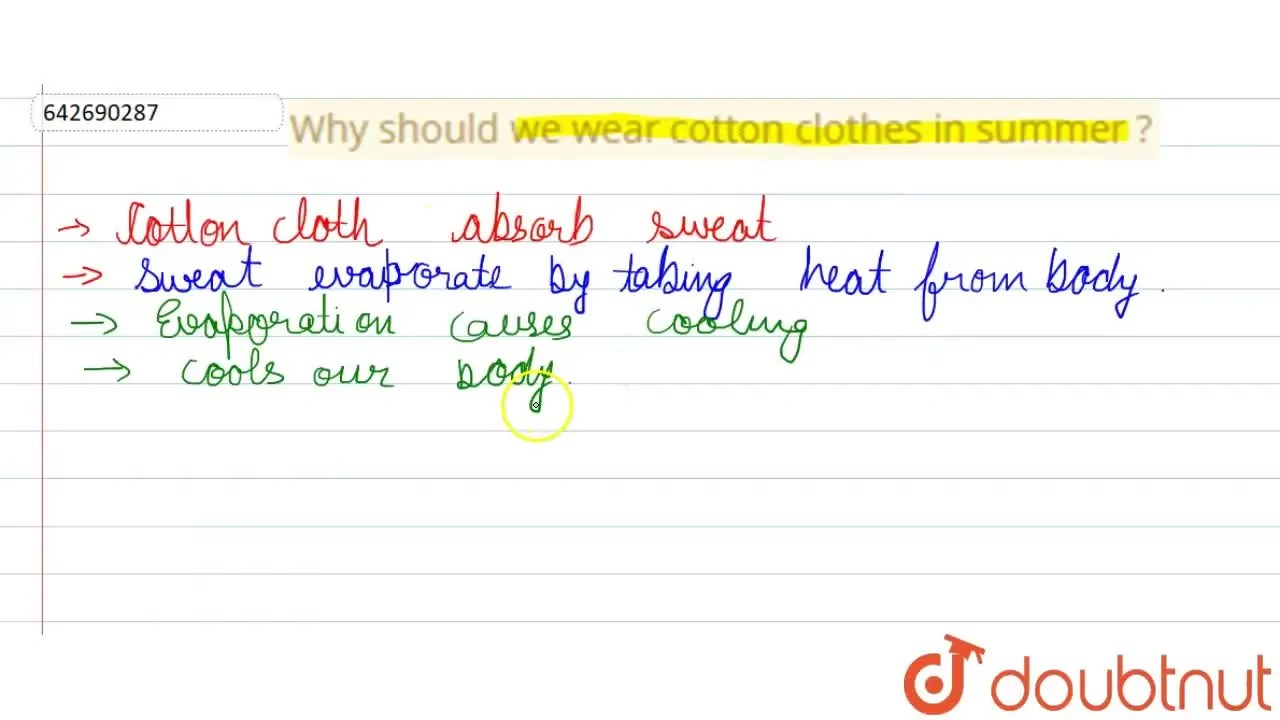 642690287
Why should we wear cotton clothes in summer ?
→ Cotton cloth absorb sweat
→ Sweat evaporate by taking heat from body .
→ Evaporation causes cooling
→ cools our body .
doubtnut